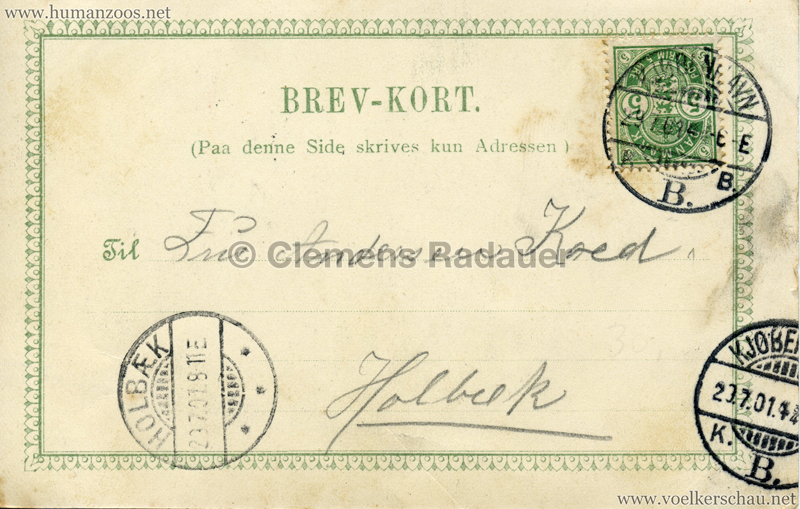 www.humanzoos.net
BREV-KORT.
(Paa denne Side skrives kun Adressen)
Til Andersen Koed
© Clemens Radauer
Holbæk
HOLBÆK
23.7.01.8-11 E
KJØBEN
23.7.01.
K.
B.
B.
B.
5 5
www.voelkerschau.net